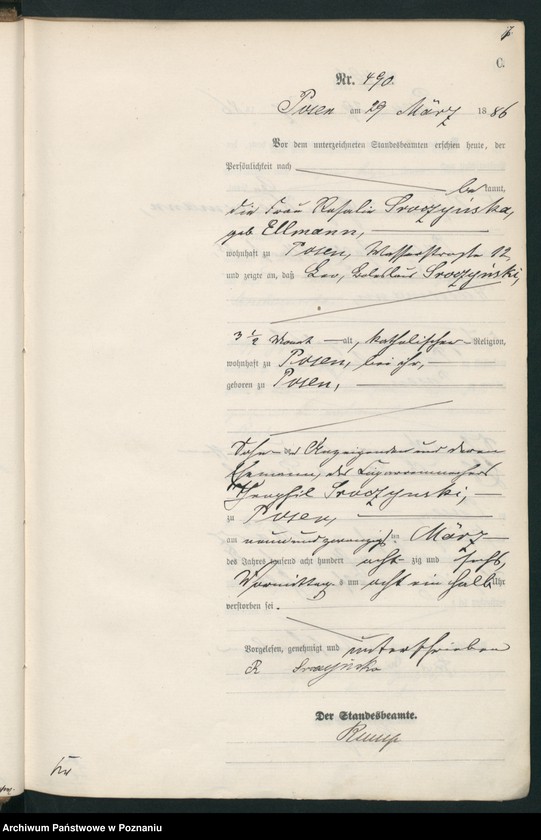 C.
Nr. 490.
Posen am 29 März 1886
Vor dem unterzeichneten Standesbeamten erschien heute, der
Persönlichkeit nach
bekannt,
die Frau Rosalie Sroczyńska,
geb Ellmann,
wohnhaft zu Posen, Wasserstraße 12,
und zeigte an, daß Leo, Boleslaus Sroczyński,
3 1/2 Monat alt, katholischer Religion,
wohnhaft zu Posen, bei ihr,
geboren zu Posen,
Sohn der Anzeigenden und deren
Ehemann, des Cigarrenmachers
Theophil Sroczynski,
zu Posen,
am neunundzwanzigsten März
des Jahres tausend acht hundert achtzig und sechs,
Vormittags um acht ein halb Uhr
verstorben sei.
Vorgelesen, genehmigt und unterschrieben
R Sroczyńska
Der Standesbeamte.
Archiwum Państwowe w Poznaniu